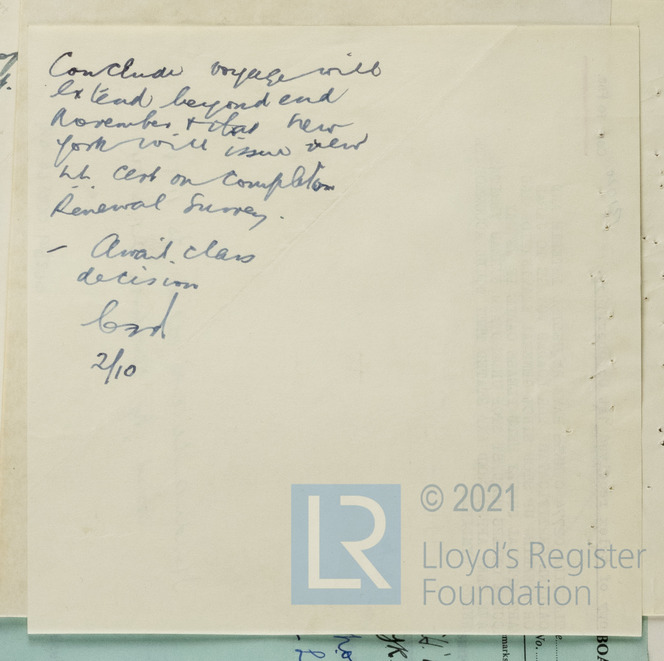 Conclude voyage will
extend beyond end
November & that New
York will issue new
LL Cert on completion
Renewal Survey.
- Await class
decision
2/10
LR
© 2021
Lloyd's Register
Foundation
BOA
No.
marks